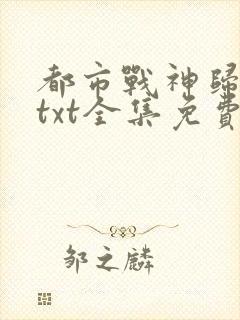 都市戰神歸
txt全集免費
邹之麟